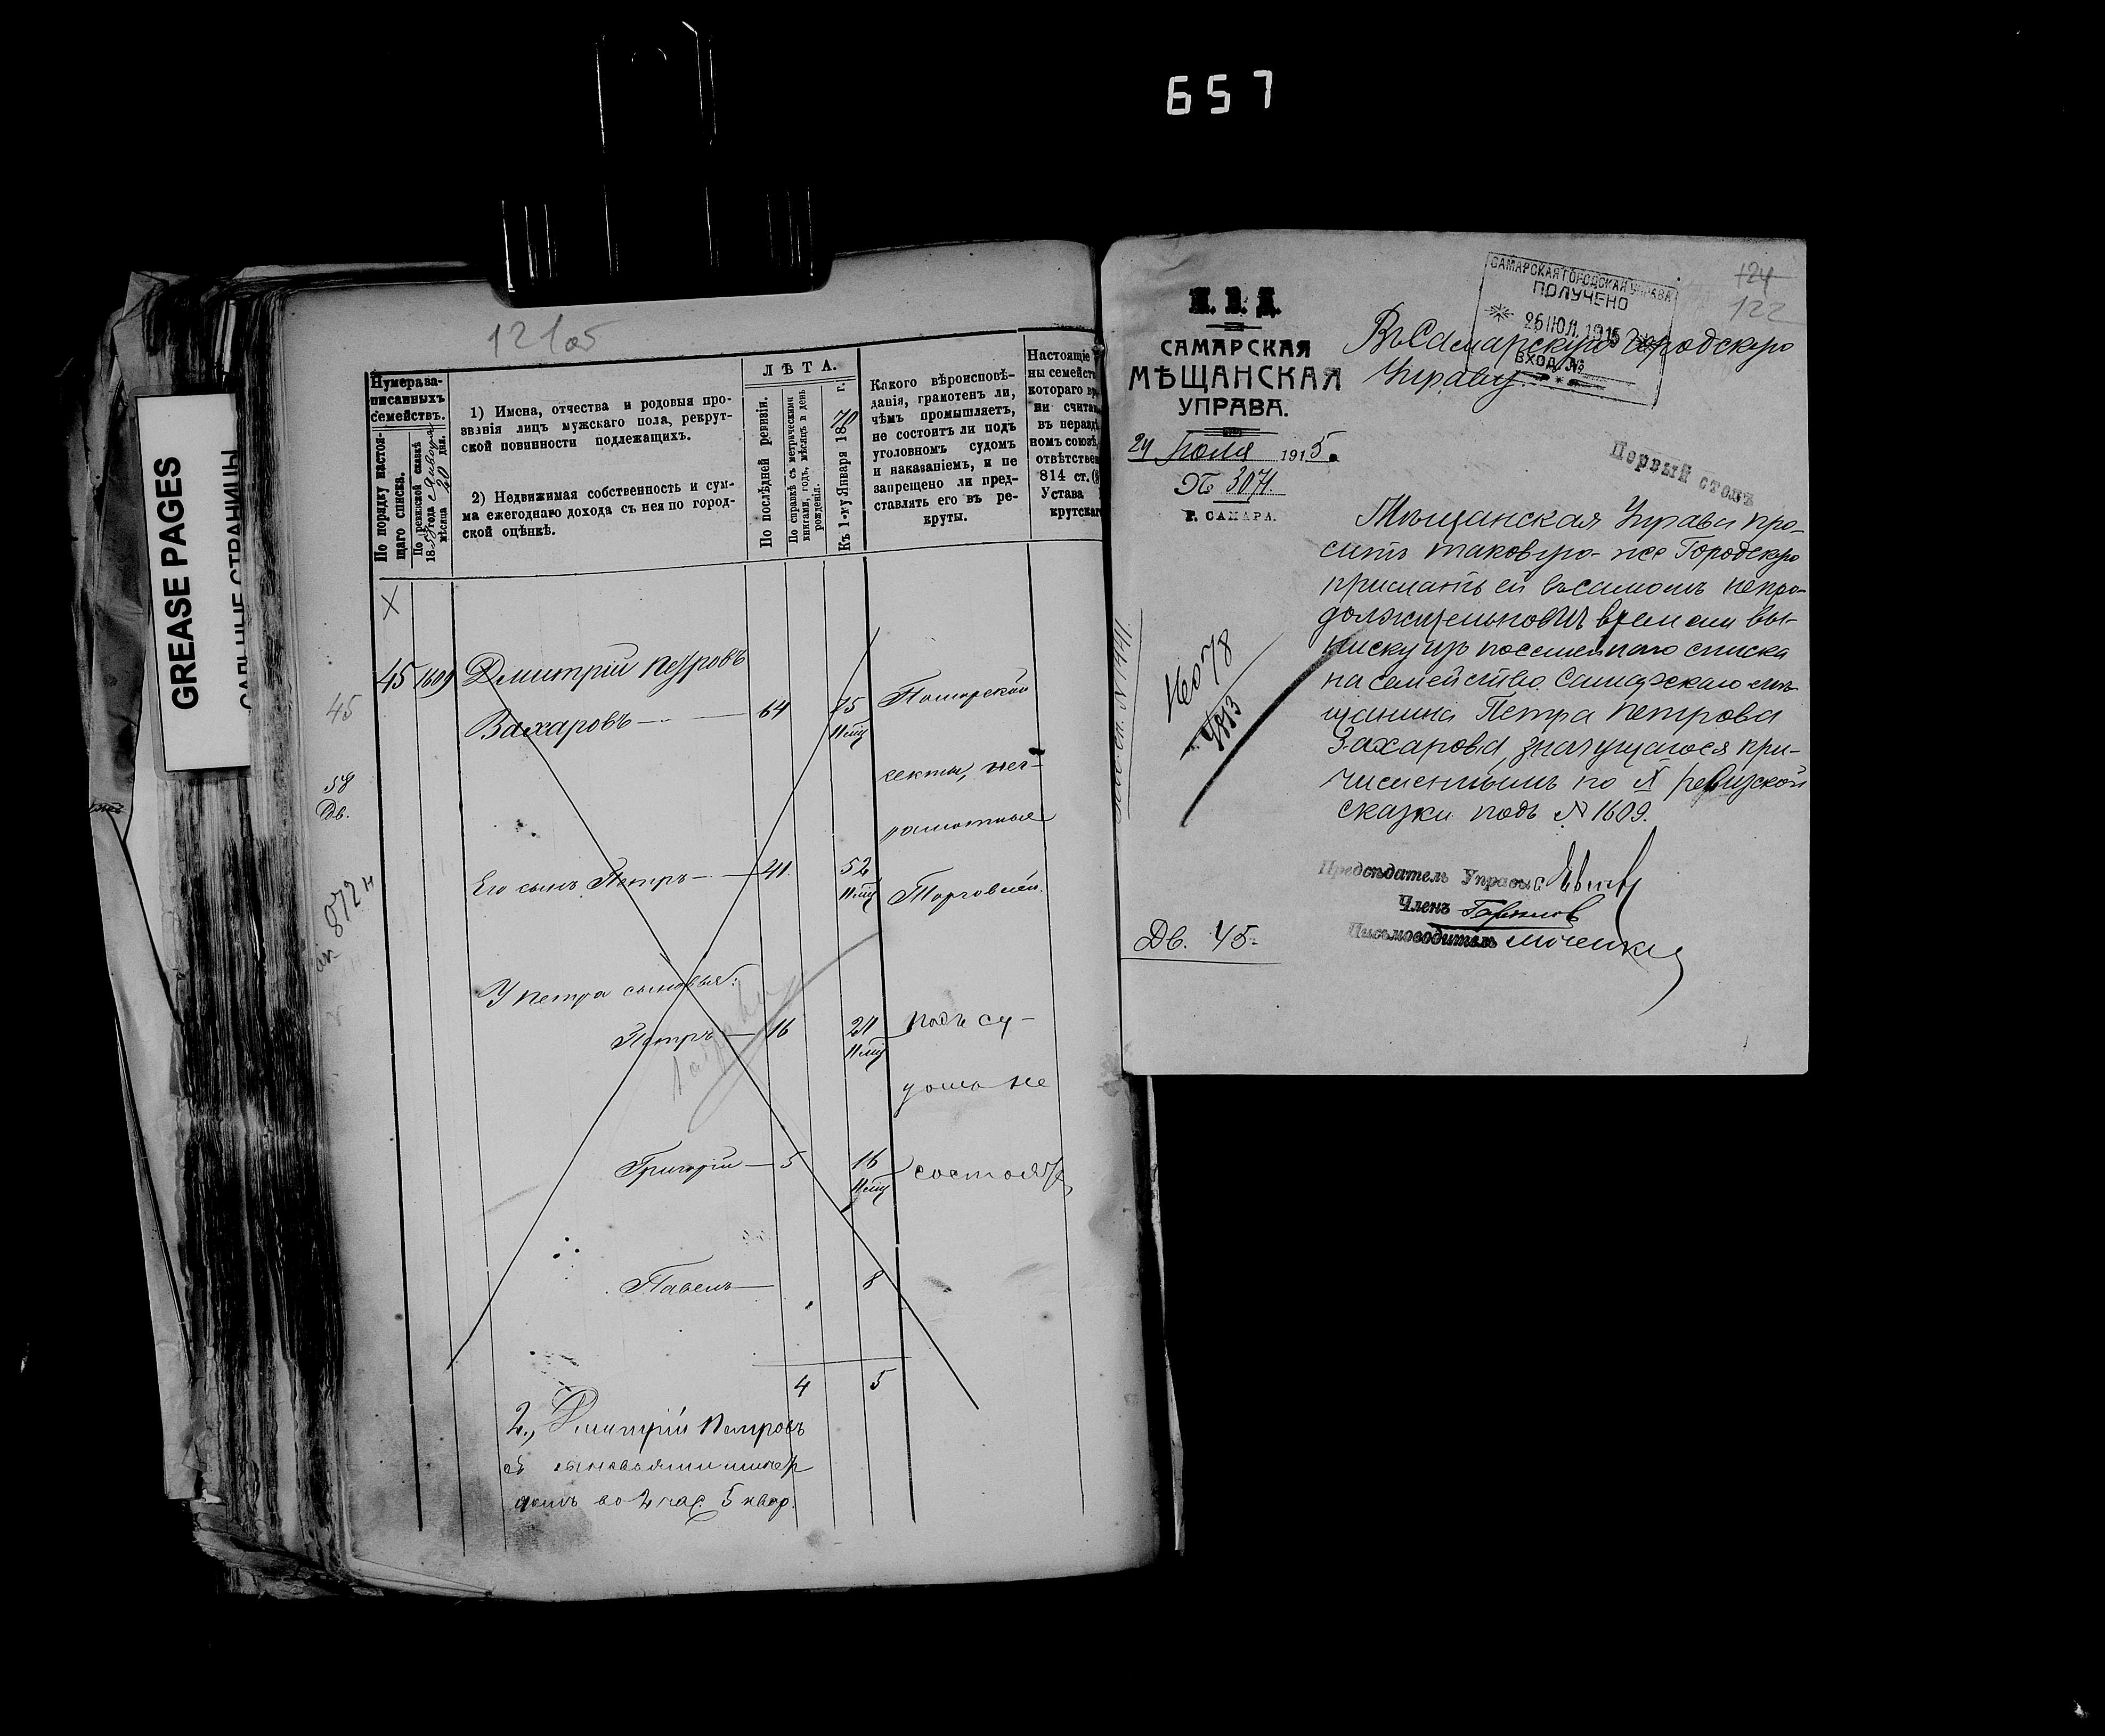 657
GREASE PAGES
САЛЬНЫЕ СТРАНИЦЫ
121об
Нумера за-
писанныхъ
семействъ.
По порядку настоя-
щаго списка.
По ревизской сказкѣ
18 года
мѣсяца 20 дня.
1) Имена, отчества и родовыя про-
званія лицъ мужскаго пола, рекрут-
ской повинности подлежащихъ.
2) Недвижимая собственность и сум-
ма ежегоднаго дохода съ нея по город-
ской оцѣнкѣ.
ЛѢТА.
По послѣдней ревизіи.
По справкѣ съ метрическими
книгами, годъ, мѣсяцъ и день
рожденія.
Къ 1-му Января 1870 г.
Какого вѣроисповѣ-
данія, грамотенъ ли,
чѣмъ промышляетъ,
не состоитъ ли подъ
уголовномъ судомъ
и наказаніемъ, и не
запрещено ли пред-
ставлять его въ ре-
круты.
Настоящіе
ны семейств
котораго вр
ни счита
въ неразд
номъ союзѣ,
отвѣтствен
814 ст. (
Устава
крутскаг
45
58
Дв.
872
45 1609 Дмитрій Петровъ
Захаровъ — 64 75
Поморской
секты, нег-
рамотные
Его сынъ Петръ — 41 52
Торговлей.
У Петра сыновья:
Петръ — 16 24
подъ су-
домъ не
Григорій — 5 16
состоятъ
Павелъ — 8
4 5
2., Дмитрій Петровъ
съ сыновьями имеетъ
домъ во 2 час. 5 квар.
М. В. Д.
САМАРСКАЯ
МѢЩАНСКАЯ
УПРАВА.
24 Іюля 1915.
№ 3071.
Г. САМАРА.
САМАРСКАЯ ГОРОДСКАЯ УПРАВА
ПОЛУЧЕНО
26 ІЮЛ. 1915
ВХОД. №
124
122
Въ Самарскую Городскую
Управу
Первый столъ
Мѣщанская Управа про-
ситъ таковую-же Городскую
прислать ей въ самомъ непро-
должительномъ времени вы-
писку изъ посемейнаго списка
на семейство Самарскаго мѣ-
щанина Петра Петрова
Захарова, значущагося при-
численнымъ по X ревизской
сказки подъ № 1609.
16078
Предсѣдатель Управы
Членъ
Письмоводитель
Дв. 45.